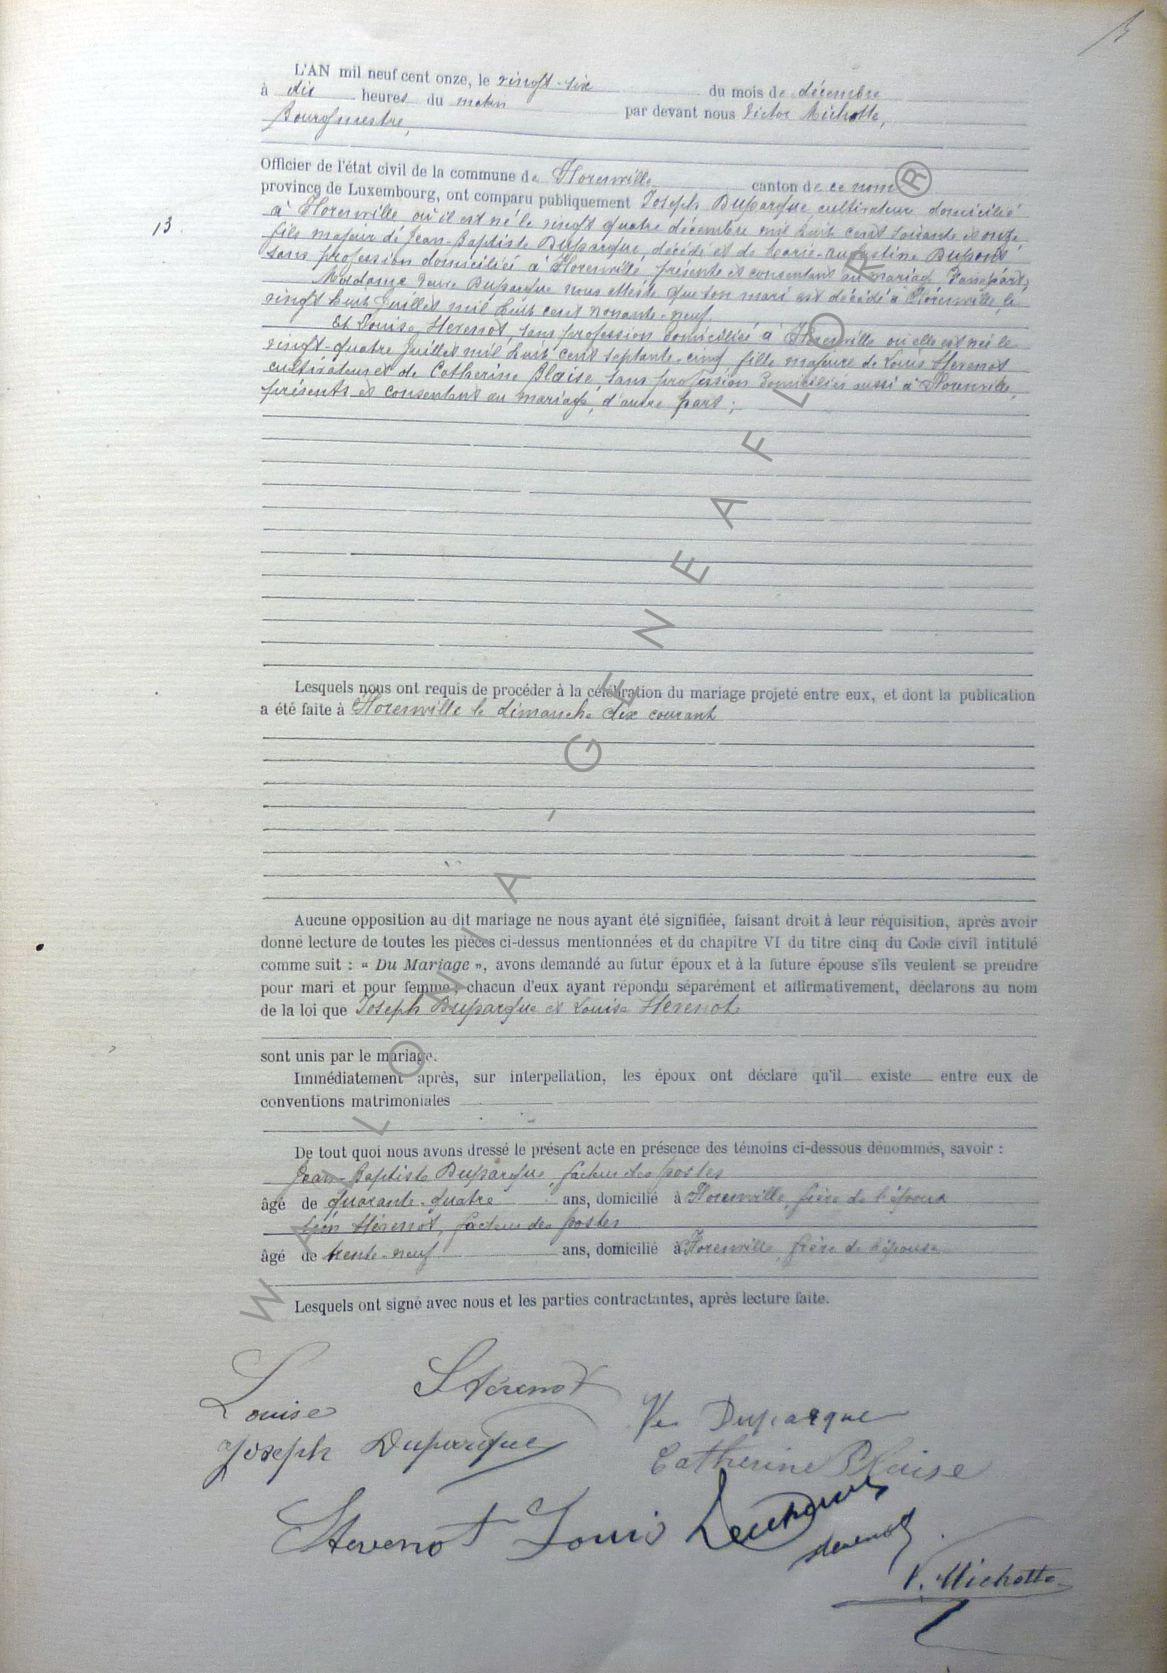 L'AN mil neuf cent onze, le vingt-six du mois de décembre
à dix heures du matin par devant nous Victor Michotte,
Bourgmestre,
Officier de l'état civil de la commune de Florenville canton de ce nom
province de Luxembourg, ont comparu publiquement Joseph Duparque cultivateur domicilié
à Florenville où il est né le vingt quatre décembre mil huit cent soixante et onze
fils majeur de Jean-Baptiste Duparque, décédé et de Marie-Augustine Dupont
sans profession domiciliée à Florenville, présente et consentant au mariage d'une part,
Madame Veuve Duparque nous atteste que son mari est décédé à Florenville, le
vingt huit Juillet mil huit cent nonante-neuf
Et Louise Stévenot, sans profession domiciliée à Florenville où elle est née le
vingt-quatre Juillet mil huit cent septante-cinq fille majeure de Louis Stévenot
cultivateur et de Catherine Blaise, sans profession domiciliés aussi à Florenville,
présents et consentant au mariage, d'autre part;
13
Lesquels nous ont requis de procéder à la célébration du mariage projeté entre eux, et dont la publication
a été faite à Florenville le dimanche dix courant
Aucune opposition au dit mariage ne nous ayant été signifiée, faisant droit à leur réquisition, après avoir
donné lecture de toutes les pièces ci-dessus mentionnées et du chapitre VI du titre cinq du Code civil intitulé
comme suit : « Du Mariage », avons demandé au futur époux et à la future épouse s'ils veulent se prendre
pour mari et pour femme ; chacun d'eux ayant répondu séparément et affirmativement, déclarons au nom
de la loi que Joseph Duparque et Louise Stévenot
sont unis par le mariage.
Immédiatement après, sur interpellation, les époux ont déclaré qu'il existe entre eux de
conventions matrimoniales
De tout quoi nous avons dressé le présent acte en présence des témoins ci-dessous dénommés, savoir :
Jean-Baptiste Duparque, facteur des postes
âgé de quarante-quatre ans, domicilié à Florenville, frère de l'époux
Stévenot, facteur des postes
âgé de trente-neuf ans, domicilié à Florenville, frère de l'épouse
Lesquels ont signé avec nous et les parties contractantes, après lecture faite.
Louise Stévenot
Joseph Duparque Ve Duparque
Catherine Blaise
Stevenot Louis
Stevenot
V. Michotte
WALLONIA - GENEAFLOR ®